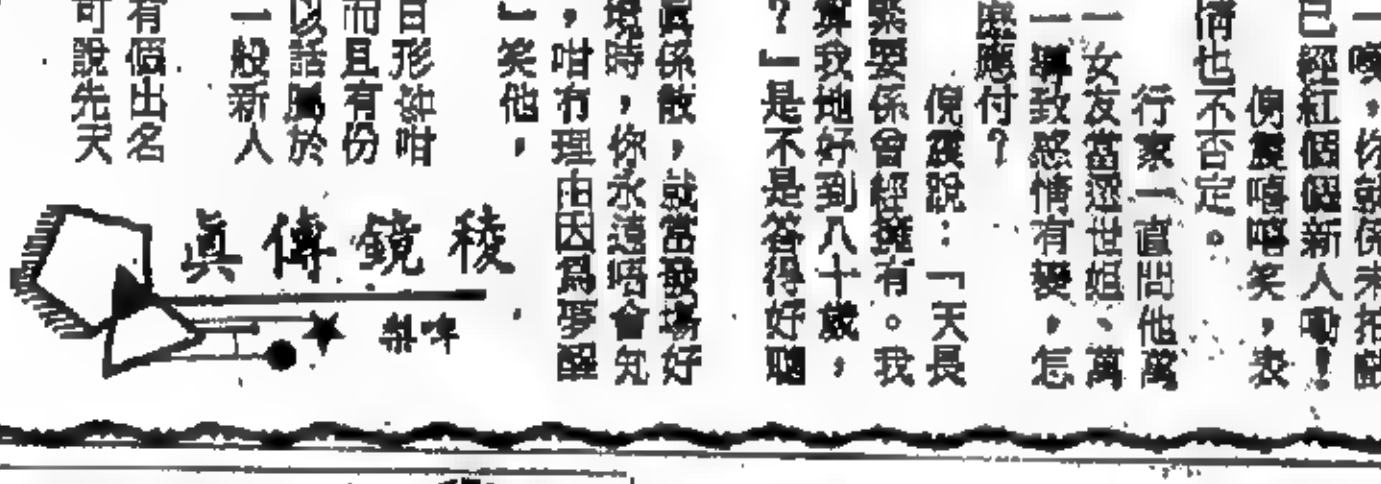 一嘆，你就係未拍戲
已經紅個個新人嘞！
倪震嘻嘻笑，表
情也不否定。
行家一直問他萬
一女友當選世姐、萬
一導致感情有變，怎
麼應付？
倪震說：「天長
緊要係曾經擁有。我
算我地好到八十歲，
？」是不是答得好聰
眞係散，就當發場好
境時，你永遠唔會知
，咁冇理由因爲夢醒
』笑他，
目形
咁
而且有份
以話屬於
一般新人
有個出名
可說先天
稜鏡傳眞